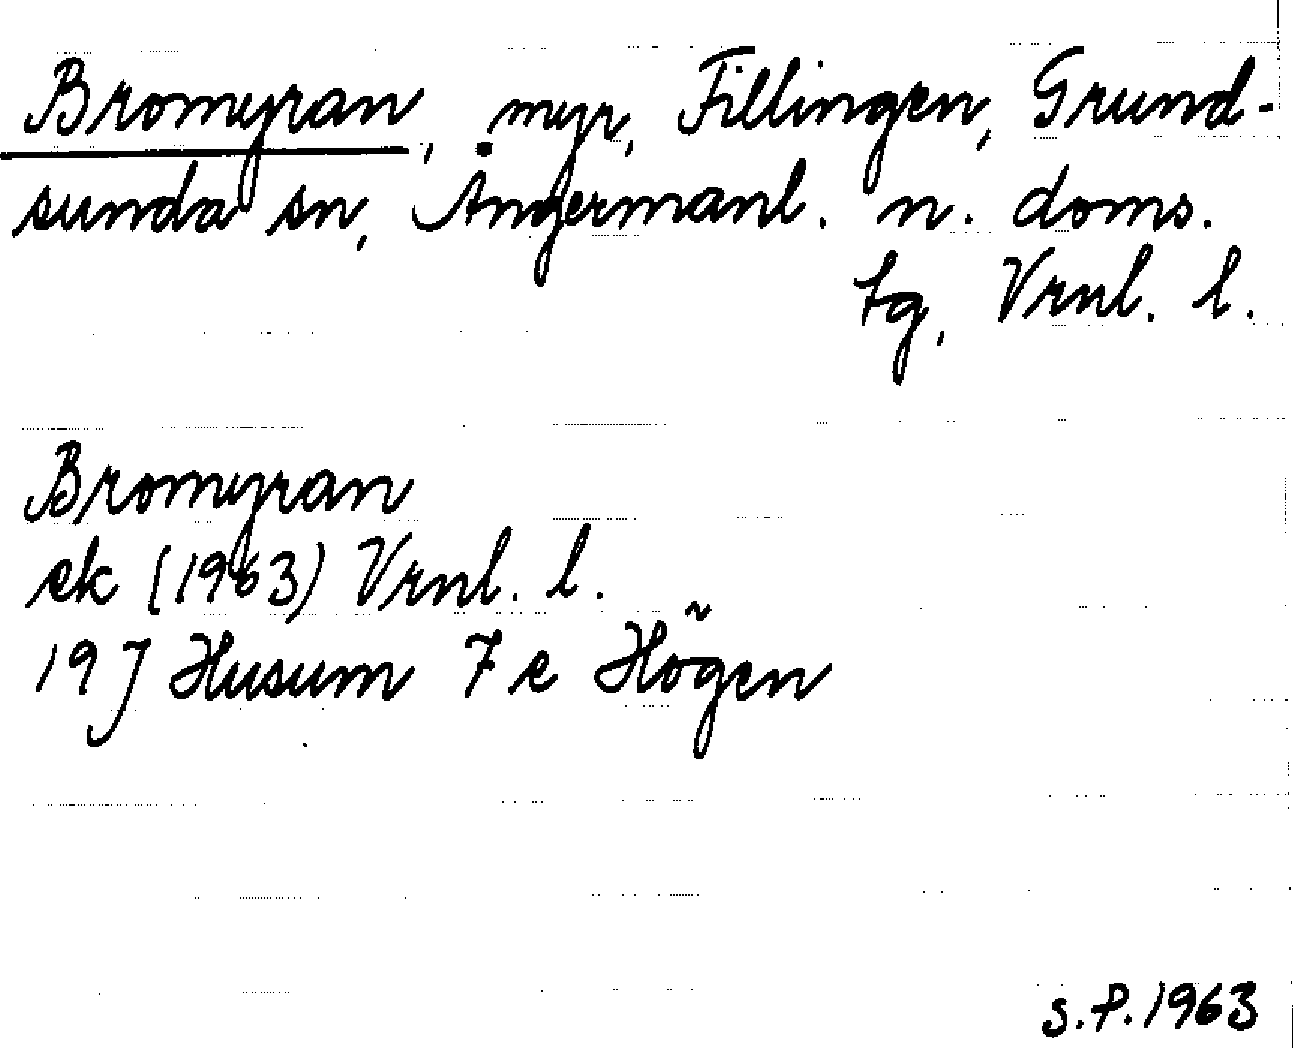 Bromyran, myr, Fillingen, Grund-
sunda sn, Ångermanl. n. doms.
tg, Vrnl. l.
Bromyran
ek (1963) Vrnl. l.
19 J Husum 7 e Högen
S.P. 1963